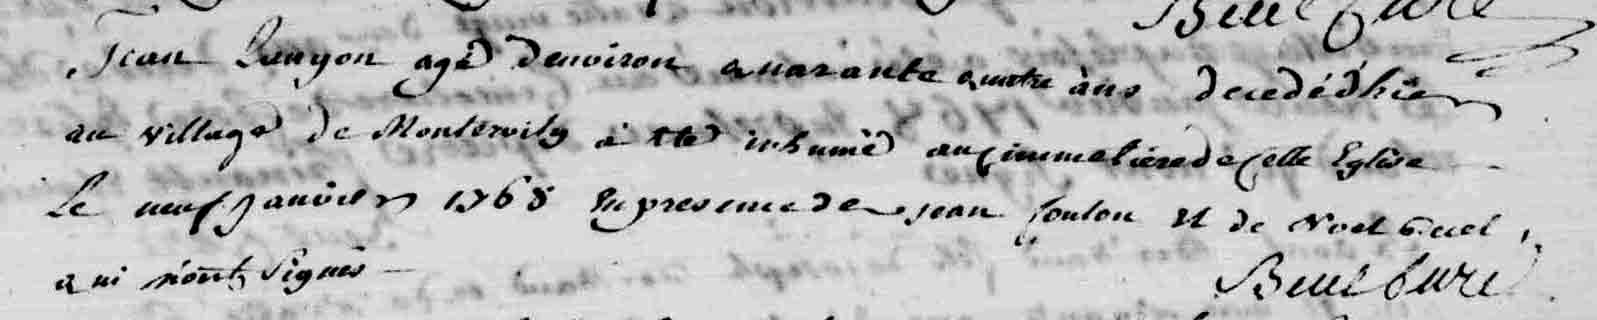 Beuc Curé
Jean Lanyon agé denviron quarante quatre ans decedé dhier
au village de Montervily à été inhumé au cimmetiere de cette Eglise
Le neuf janvier 1768 en presence de jean foulon et de Noel
qui n'ont signés
Beuc Curé